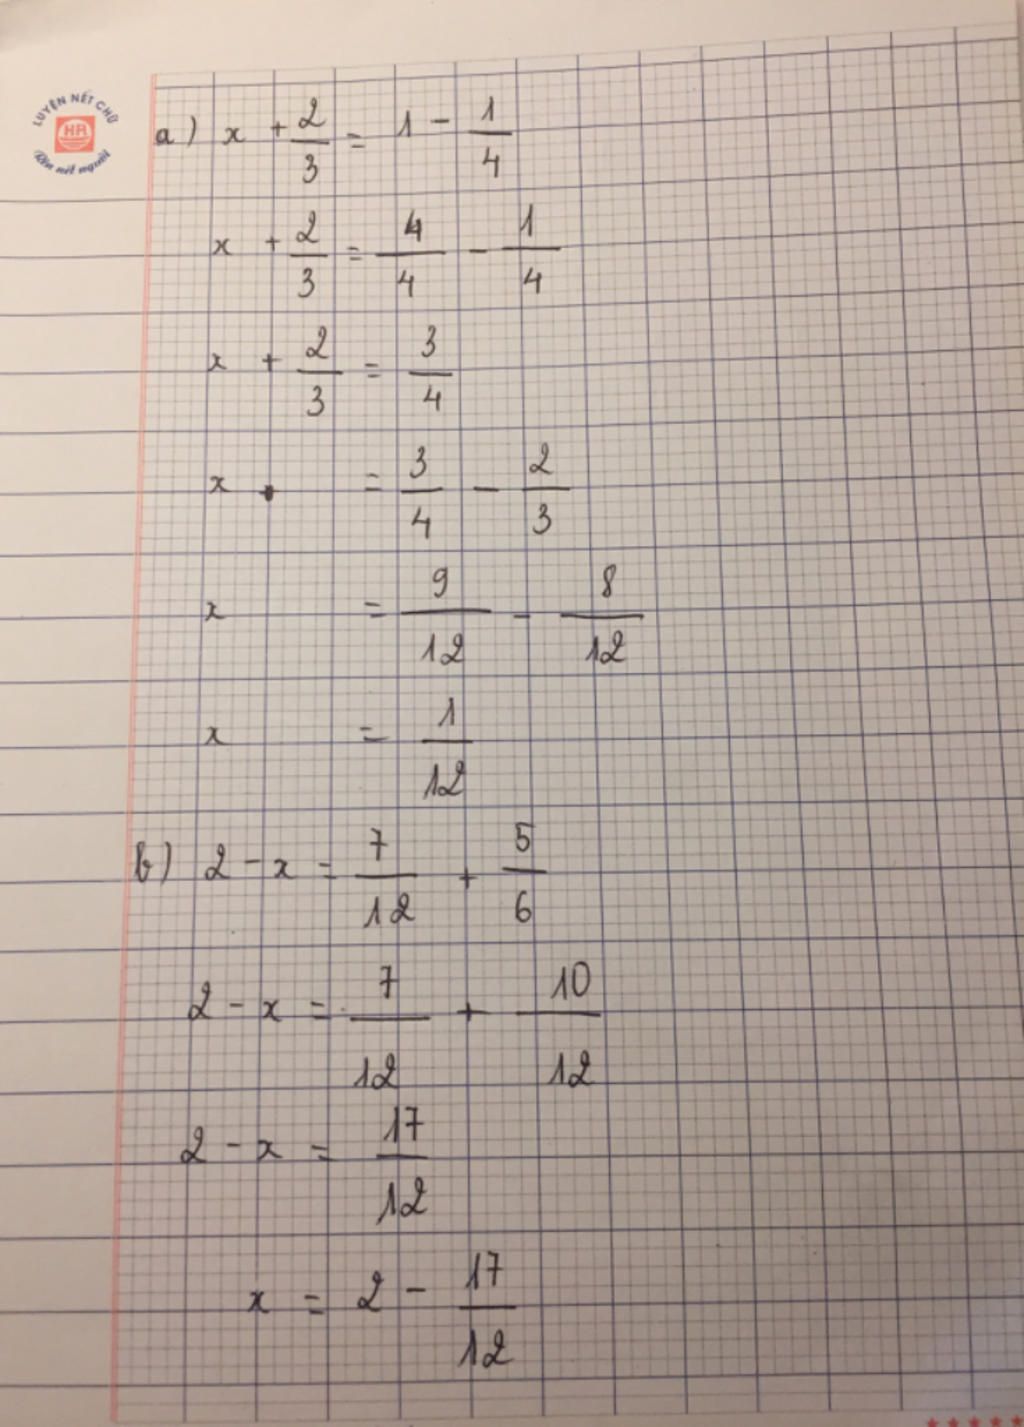 LUYỆN NÉT CHỮ
HA
Rèn nết người
a) x + 2/3 = 1 - 1/4
x + 2/3 = 4/4 - 1/4
x + 2/3 = 3/4
x = 3/4 - 2/3
x = 9/12 - 8/12
x = 1/12
b) 2 - x = 7/12 + 5/6
2 - x = 7/12 + 10/12
2 - x = 17/12
x = 2 - 17/12